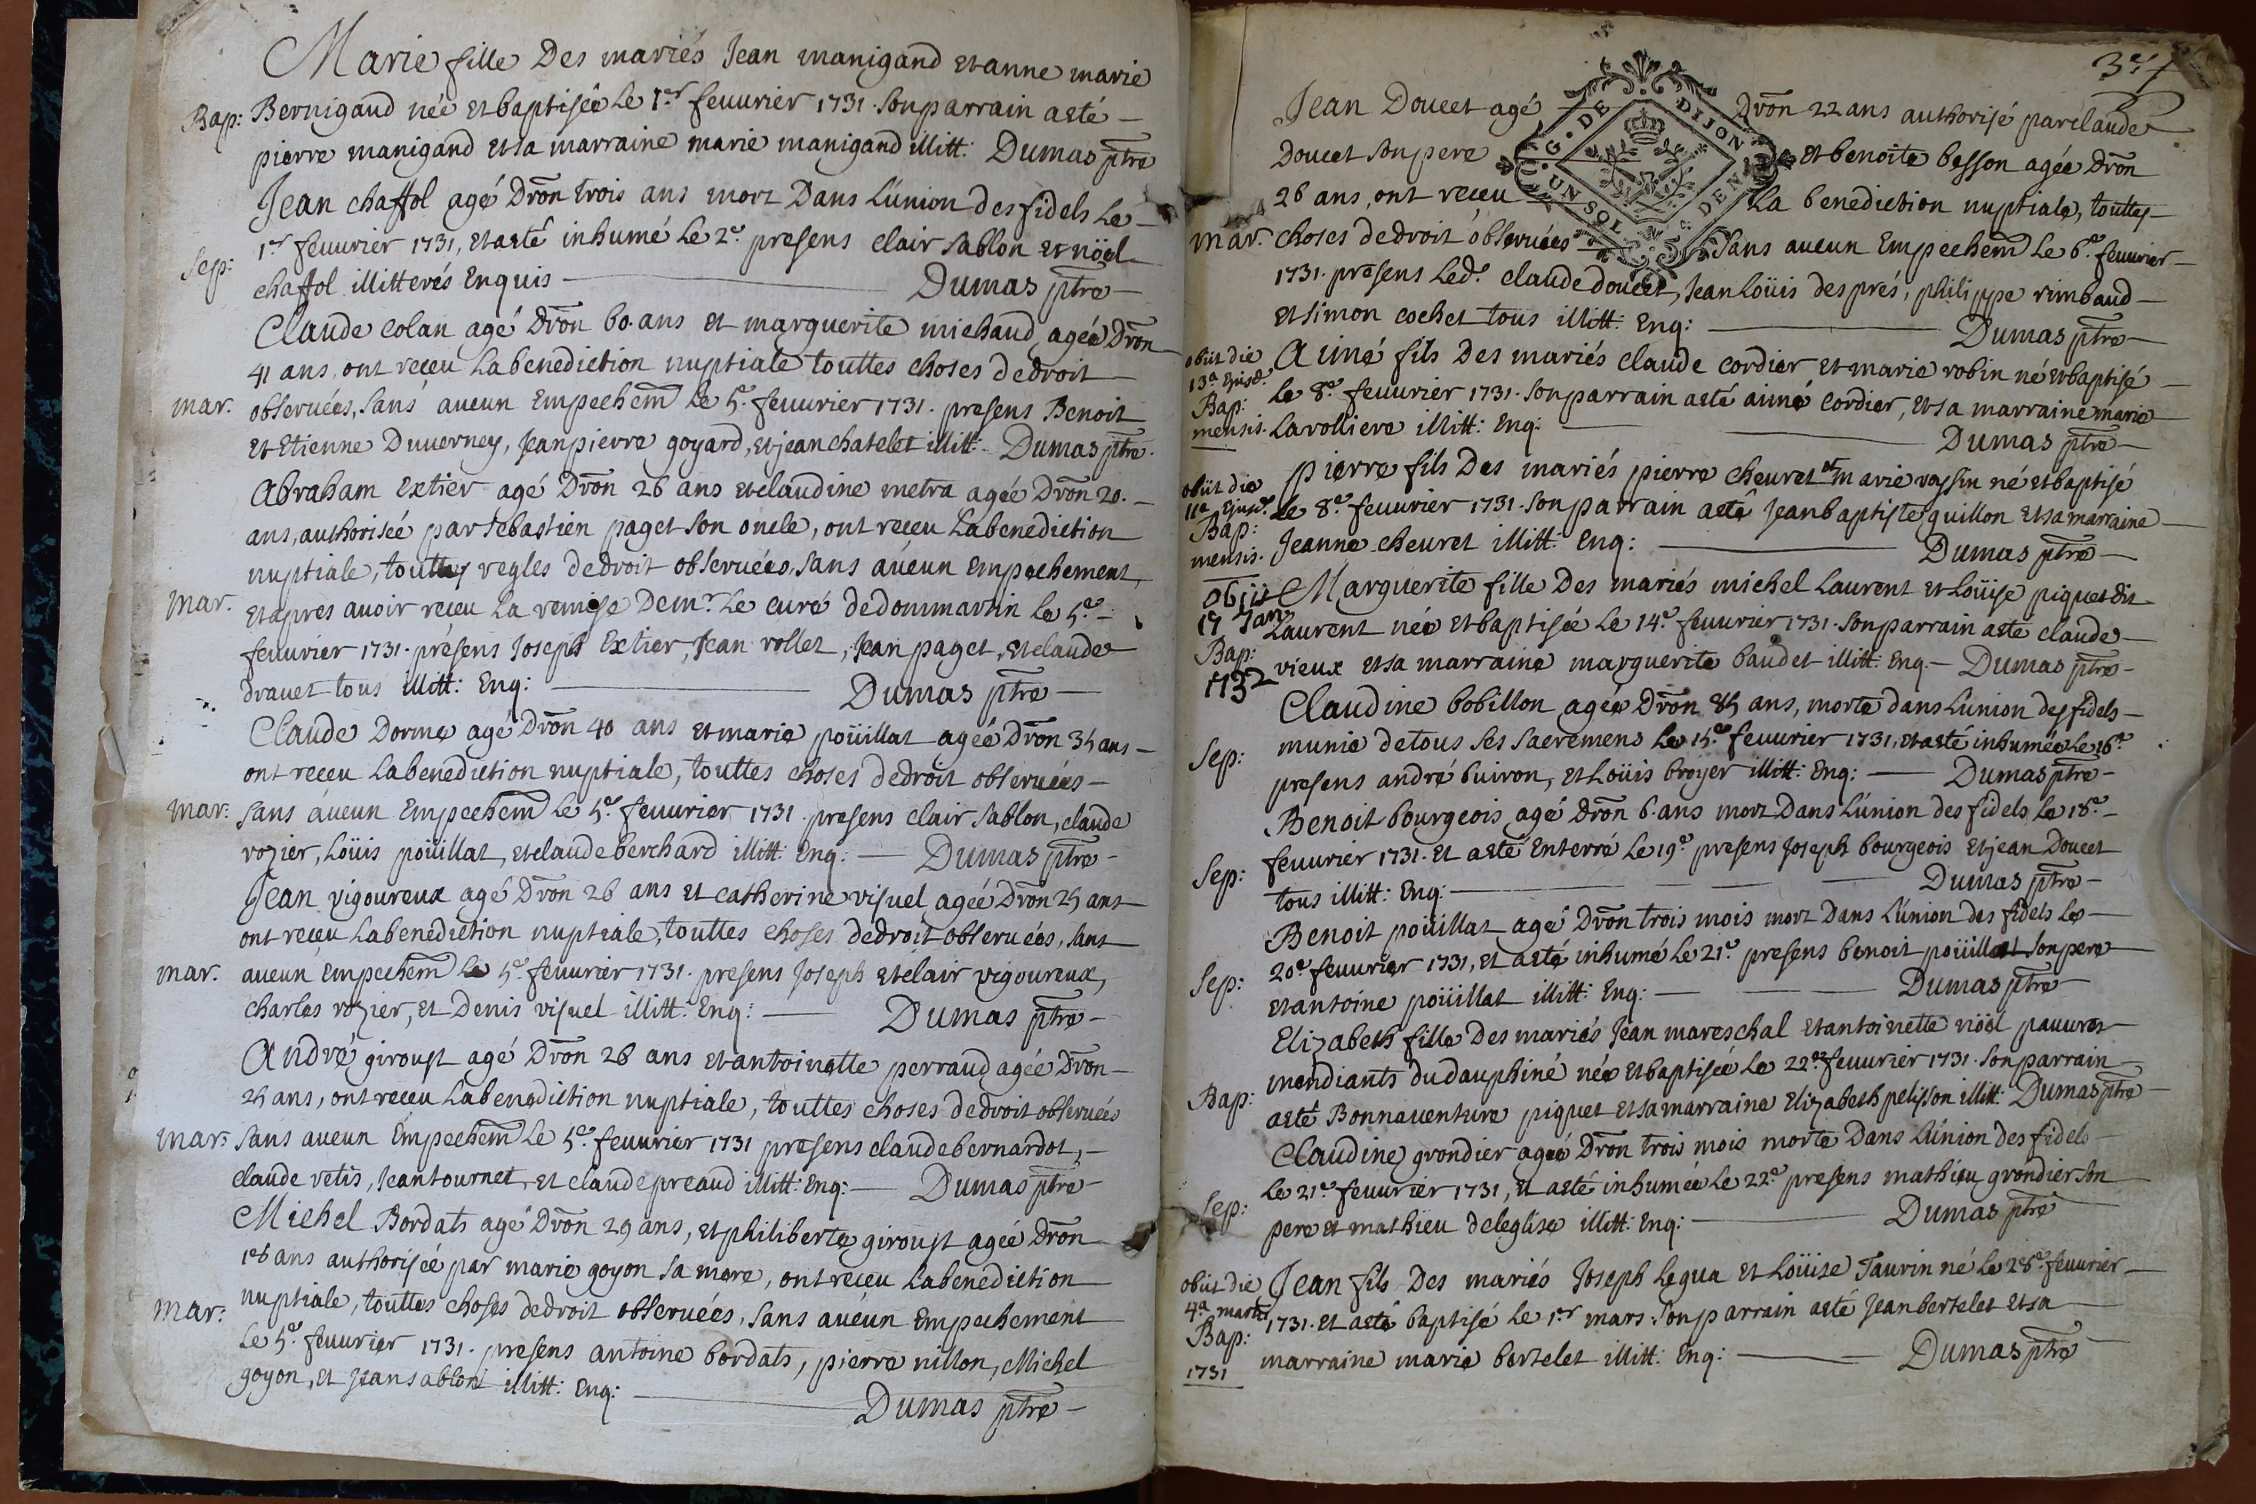 Marie fille Des mariés Jean manigand et anne marie
Bap: Bernigaud née et baptisée le 1er feuurier 1731. Son parrain a eté
pierre manigand et sa marraine marie manigand illitt: Dumas ptre
Jean chaffol agé Dron trois ans mort Dans L'union des fidels le
Sep: 1er feuurier 1731, et a eté inhumé le 2e presens clair sablon et nöel
chaffol illitterés Enquis Dumas ptre
Claude colan agé Dron 60 ans et marguerite michaud agée Dron
41 ans ont receu La benediction nuptiale touttes choses de droit
mar. obseruées, sans aucun Empechem le 5e feuurier 1731. presens Benoit
et Etienne Duuerney, Jean pierre goyard, et jean chatelet illitt: Dumas ptre
Abraham Extier agé Dron 26 ans et claudine metra agée Dron 20.
ans, authorisée par sebastien paget son oncle, ont receu La benediction
nuptiale, touttes regles de droit obseruées. Sans aucun Empechement,
mar. et apres auoir receu La remise De mr. Le curé de dommartin le 5e
feuurier 1731. présens Joseph Extier, Jean rollet, Jean paget, et claude
drauet tous illitt: Enq: Dumas ptre
Claude Dorme agé Dron 40 ans et marie poüillat agée Dron 35 ans
ont receu La benediction nuptiale, touttes choses de droit obseruées
mar. sans aucun Empechem le 5e feuurier 1731. presens clair sablon, claude
rozier, Loüis poüillat, et claude berchard illitt: Enq: Dumas ptre
Jean vigoureux agé Dron 26 ans et catherine visuel agée Dron 25 ans
ont receu La benediction nuptiale, touttes choses de droit obseruées, sans
mar. aucun Empechem le 5e feuurier 1731. presens Joseph et clair vigoureux,
charles rozier, et Denis visuel illitt: Enq: Dumas ptre
André giroust agé Dron 26 ans et antoinette perraud agée Dron
25 ans, ont receu La benediction nuptiale, touttes choses de droit obseruées
mar: sans aucun Empechem le 5e feuurier 1731 presens claude bernardot,
claude vetis, Jean tournet, et claude preaud illitt: Enq: Dumas ptre
Michel Bordats agé Dron 29 ans, et philiberte giroust agée Dron
18 ans authorisée par marie goyon sa mere, ont receu La benediction
mar: nuptiale, touttes choses de droit obseruées, sans aucun Empechement
le 5e feuurier 1731. presens antoine bordats, pierre nillon, Michel
goyon, et Jean sablon illitt: Enq: Dumas ptre
37
Jean Doucet agé Dron 22 ans authorisé par claude
Doucet son pere et benoite besson agée Dron
26 ans, ont receu La benediction nuptiale, touttes
mar. choses de droit obseruées sans aucun Empechem le 6e feuurier
1731. presens led. claude doucet, Jean Loüis despres, philippe rimbaud
et simon cochet tous illitt: Enq: Dumas ptre
G. DE DIJON
UN SOL 4 DEN
obiit die Aimé fils Des mariés claude cordier et marie robin né et baptisé
13a Ejusd. le 8e feuurier 1731. son parrain a eté aimé cordier, et sa marraine marie
Bap: mensis. Larolliere illitt: Enq: Dumas ptre
obiit die pierre fils Des mariés pierre cheuret et marie voysin né et baptisé
11a Ejusd. le 8e feuurier 1731. son parrain a eté Jean baptiste guillon et sa marraine
Bap: mensis. Jeanne cheuret illitt: Enq: Dumas ptre
obiit Marguerite fille Des mariés michel Laurent et Loüise piquet dit
17 Jan Laurent née et baptisée le 14e feuurier 1731. son parrain a eté claude
Bap: 1732 vieux et sa marraine marguerite baudet illitt: Enq. Dumas ptre
Claudine bobillon agée Dron 85 ans, morte dans L'union des fidels
Sep: munie de tous ses sacremens le 15e feuurier 1731, et a eté inhumée le 16e
presens andré buiron, et Loüis broyer illitt: Enq: Dumas ptre
Benoit bourgeois agé Dron 6 ans mort Dans L'union des fidels le 18e
Sep: feuurier 1731. et a eté Enterré le 19e presens Joseph bourgeois et jean Doucet
tous illitt: Enq: Dumas ptre
Benoit poüillat agé Dron trois mois mort Dans L'union des fidels le
Sep: 20e feuurier 1731, et a eté inhumé le 21e presens benoit poüillat son pere
et antoine poüillat illitt: Enq: Dumas ptre
Elizabeth fille Des mariés Jean mareschal et antoinette nöel pauures
mendiants du dauphiné née et baptisée le 22e feuurier 1731. son parrain
Bap: a eté Bonnauenture piquet et sa marraine Elizabeth pelisson illitt: Dumas ptre
Claudine grondier agée Dron trois mois morte Dans L'union des fidels
le 21e feuurier 1731, et a eté inhumée le 22e presens mathieu grondier son
Sep: pere et mathieu deleglise illitt: Enq: Dumas ptre
obiit die Jean fils Des mariés Joseph Legua et Loüise Taurin né le 28e feuurier
4a martis 1731. et a eté baptisé le 1er mars. son parrain a eté Jean bertelet et sa
Bap: 1731 marraine marie bertelet illitt: Enq: Dumas ptre